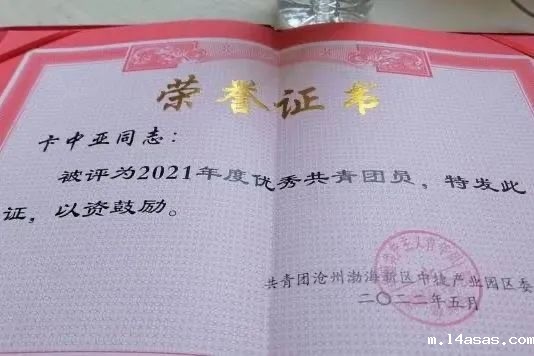 荣誉证书
卡中亚同志：
被评为2021年度优秀共青团员，特发此
证，以资鼓励。
共青团沧州渤海新区中捷产业园区委
二〇二二年五月
m.14asas.com